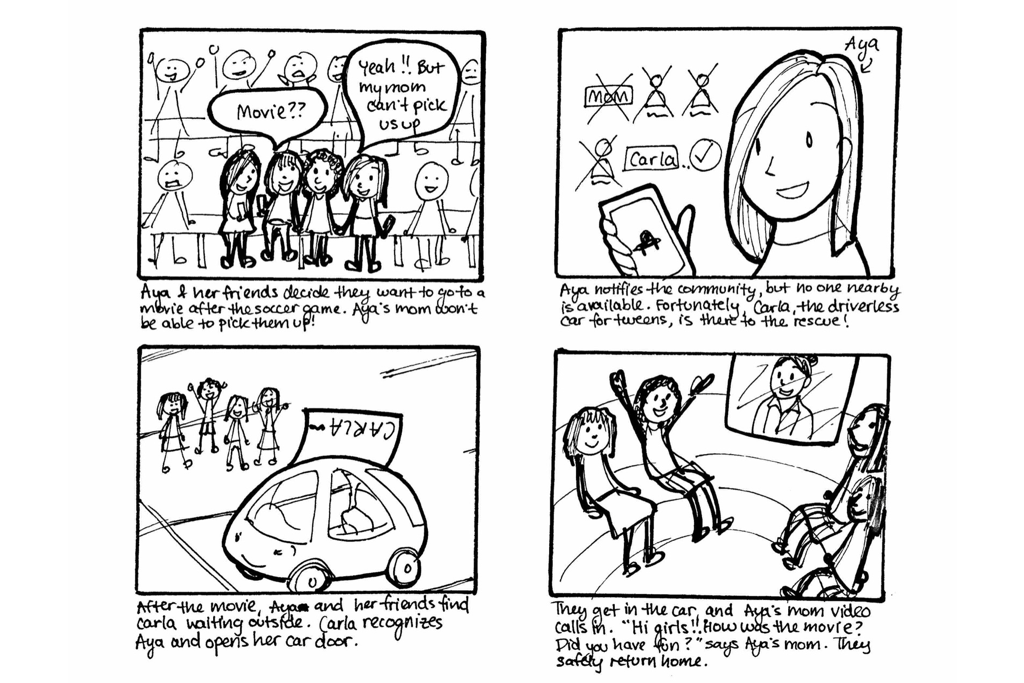 Movie??
Yeah!! But
my mom
can't pick
us up
Aya & her friends decide they want to go to a
movie after the soccer game. Aya's mom won't
be able to pick them up!
Aya
Mom
Carla..
Aya notifies the community, but no one nearby
is available. Fortunately, Carla, the driverless
car for tweens, is there to the rescue!
CARLA
After the movie, Aya and her friends find
Carla waiting outside. Carla recognizes
Aya and opens her car door.
They get in the car, and Aya's mom video
calls in. "Hi girls!! How was the movie?
Did you have fun?" says Aya's mom. They
safely return home.